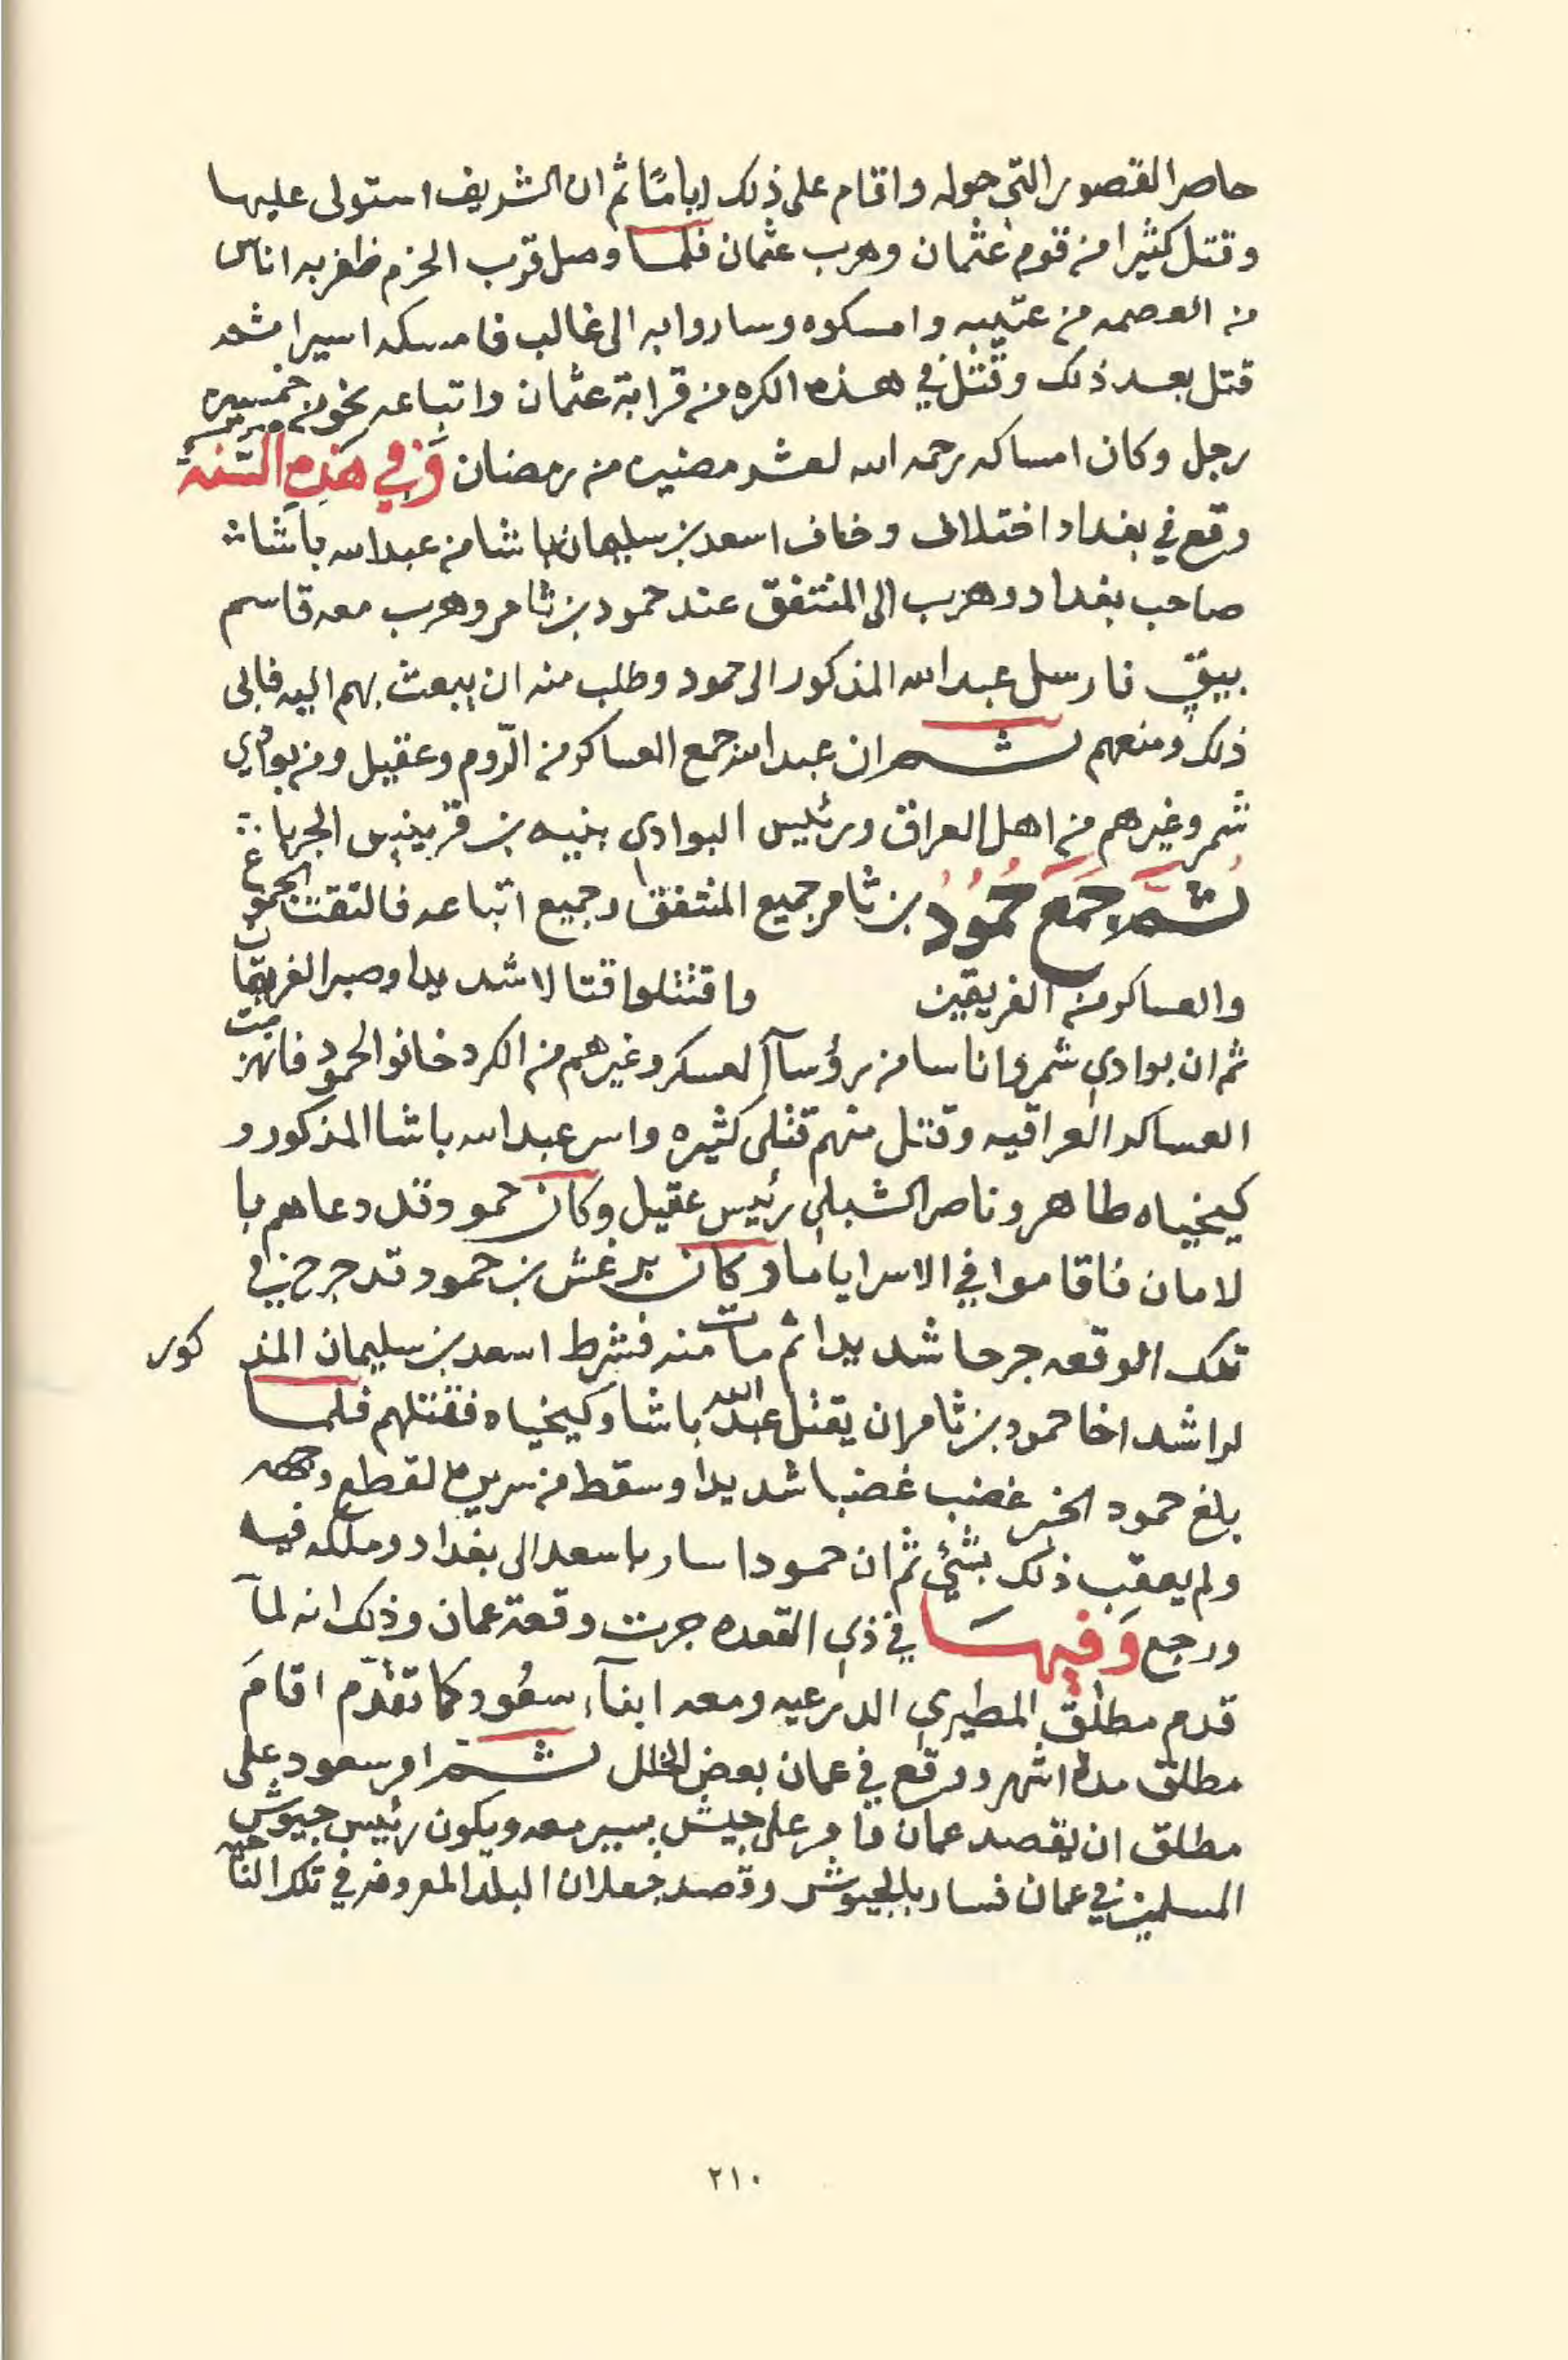 حاصر القصور التي حوله واقام على ذلك اياما ثم ان الشريف استولى عليها
وقتل كثيرا من قوم عثمان وهرب عثمان فلما وصل قرب الحزم ظفر به اناس
من العصمه من عتيبه وامسكوه وساروا به الى غالب فامسكه اسيرا ثم
قتل بعد ذلك وقتل في هذه الكره من قرابة عثمان واتباعه نحو من خمسين
رجل وكان امساكه رحمه الله لعشر مضين من رمضان وفي هذه السنة
وقع في بغداد اختلاف وخاف اسعد بن سليمان باشا من عبدالله باشا
صاحب بغداد وهرب الى المنتفق عند حمود بن ثامر وهرب معه قاسم
بيق فارسل عبدالله المذكور الى حمود وطلب منه ان يبعث بهم اليه فابى
ذلك ومنعهم ثم ان عبدالله جمع العساكر من الروم وعقيل ومن بوادي
شمر وغيرهم من اهل العراق ورئيس البوادي بنيه بن قرينيس الجربا
ثم جمع حمود بن ثامر جميع المنتفق وجميع اتباعه فالتقت الجموع
والعساكر من الفريقين واقتتلوا قتالا شديدا وصبر الفريقان
ثم ان بوادي شمر واناسا من رؤسآ العسكر وغيرهم من الكرد خانوا لحمود فانهزمت
العساكر العراقيه وقتل منهم قتلى كثيره واسر عبدالله باشا المذكور و
كيخياه طاهر وناصر الشبلي رئيس عقيل وكان حمود قد دعاهم با
لامان فاقاموا في الاسر اياما وكان برغش بن حمود قد جرح في
تلك الوقعه جرحا شديدا ثم مات منه فشرط اسعد بن سليمان المذكور
لراشد اخا حمود بن ثامر ان يقتل عبدالله باشا وكيخياه فقتلهم فلما
بلغ حمود الخبر غضب غضبا شديدا وسقط من سريره لقطع وجهه
ولم يعقب ذلك بشئ ثم ان حمودا سار باسعد الى بغداد وملكه فيه
ورجع وفيها في ذي القعده جرت وقعة عمان وذلك انه لمآ
قدم مطلق المطيري الدرعيه ومعه ابنآء سعود كما تقدم اقام
مطلق مدة اشهر ووقع في عمان بعض الخلل ثم امر سعود على
مطلق ان يقصد عمان فامر على جيش يسير معه ويكون رئيس جيوش
المسلمين في عمان فسار بالجيوش وقصد جعلان البلد المعروفه في تلك الناحيه
٢١٠